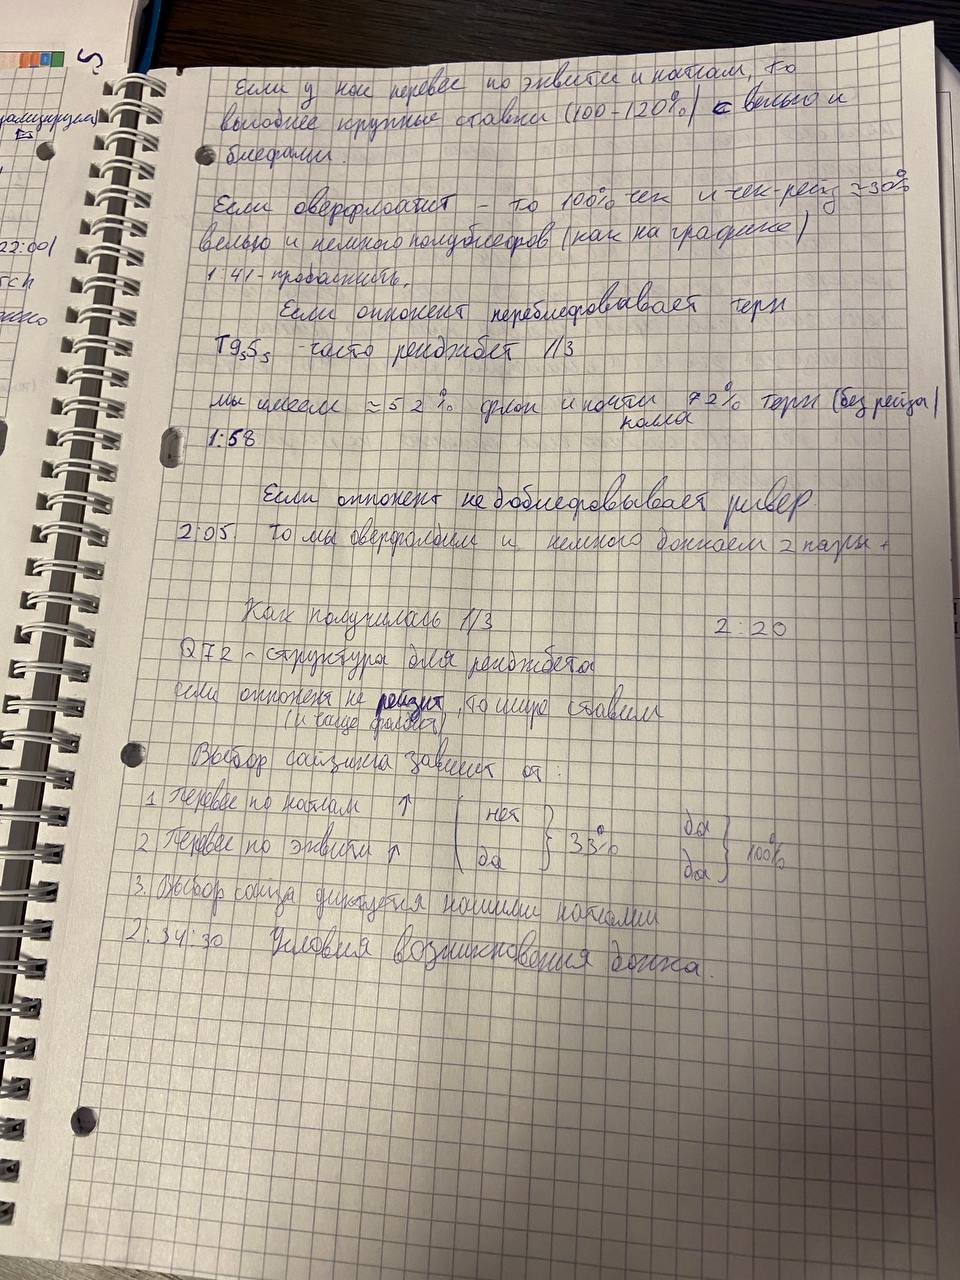 Если у нас перевес по эквити и натсам, то
выгоднее крупные ставки (100-120%) с велью и
блефами.
Если оверфлоатит - то 100% чек и чек-рейз ≈30%
велью и немного полублефов (как на графике)
1:41 -
Если оппонент переблефовывает терн
T9s5s - часто рейнджбет 1/3
мы имеем ≈52% флоп и почти 72% терн (без рейза)
колла
1:58
Если оппонент недоблефовывает ривер
2:05 то мы оверфолдим и немного донкаем 2 пары +
Как получилась 1/3 2:20
Q72 - структура для рейнджбета
если оппонент не рейзит, то шире ставим
(и чаще фолдит)
Выбор сайзинга зависит от:
1 Перевес по натсам ↑ нет да
33% 100%
2 Перевес по эквити ↑ да да
3. Выбор сайза диктуется нашими натсами
2:34:30 Условия возникновения донка.
5
22:00)